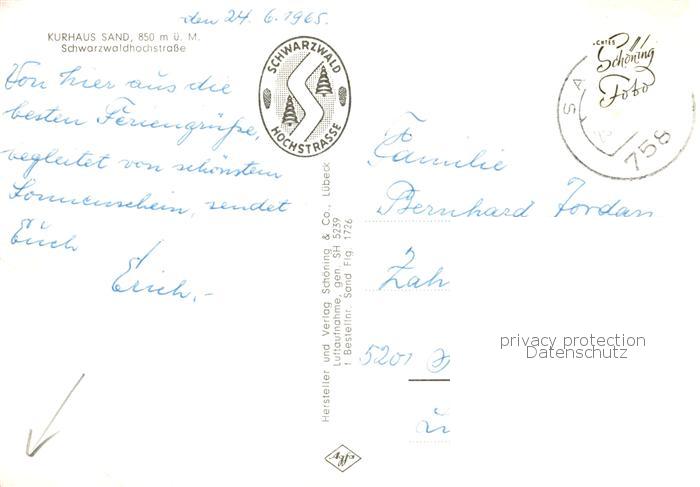 den 24. 6. 1965.
KURHAUS SAND, 850 m ü. M.
Schwarzwaldhochstraße
Von hier aus die
besten Feriengrüße,
begleitet von schönstem
Sonnenschein, sendet
Euch
Erich.-
SCHWARZWALD
HOCHSTRASSE
Hersteller und Verlag Schöning & Co., Lübeck
Luftaufnahme, gen. SH 5259
1 Bestellnr. Sand Flg. 1726
Agfa
ECHTES
Schöning
Foto
SA
758
Familie
Bernhard Jordan
Zah
5201
privacy protection
Datenschutz